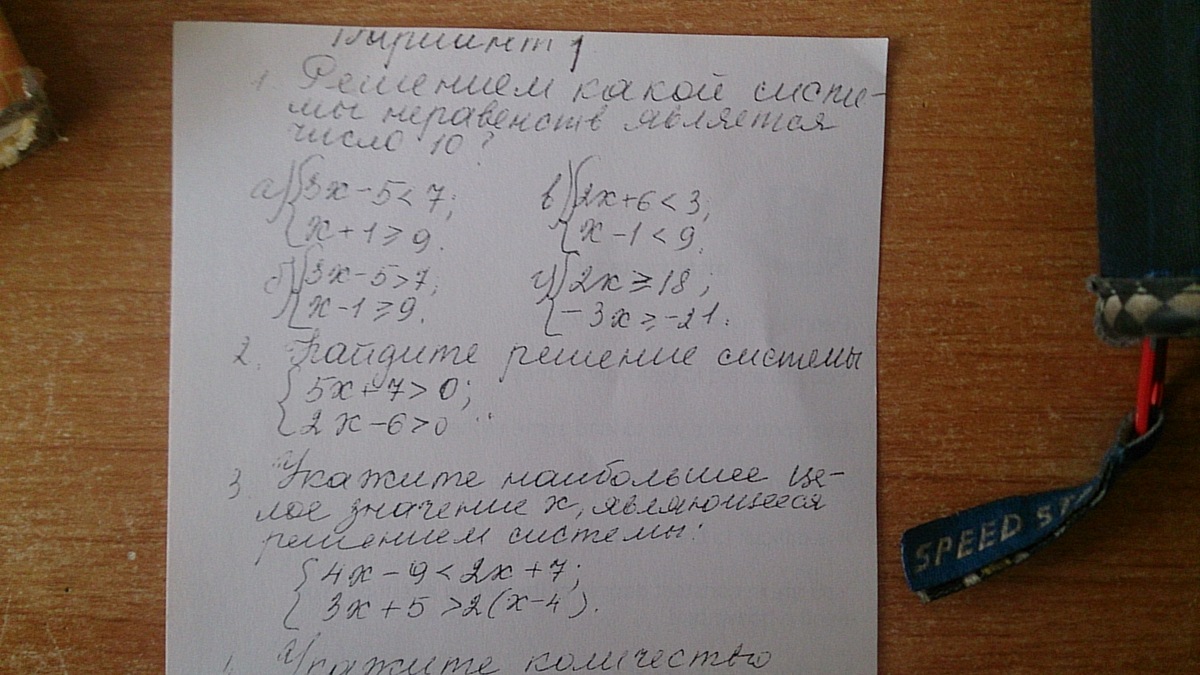 Вариант 1
1. Решением какой систе-
мы неравенств является
число 10?
а) { 3x - 5 < 7;
x + 1 ≥ 9.
в) { 2x + 6 < 3;
x - 1 < 9.
б) { 3x - 5 > 7;
x - 1 ≥ 9.
г) { 2x ≥ 18;
- 3x ≥ -21.
2. Найдите решение системы
{ 5x + 7 > 0;
2x - 6 > 0
3 Укажите наибольшее це-
лое значение x, являющееся
решением системы:
{ 4x - 9 < 2x + 7;
3x + 5 > 2(x - 4).
Укажите количество
SPEED